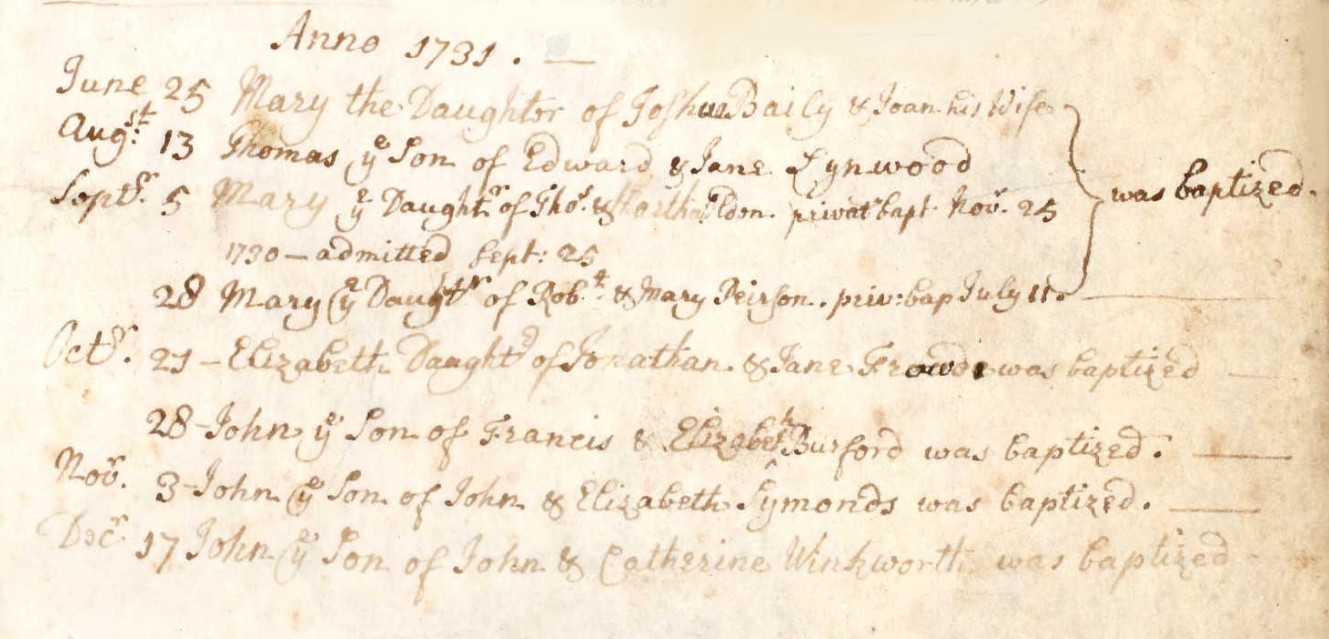 Anno 1731.
June 25 Mary the Daughter of Joshua Baily & Joan his Wife
Augst: 13 Thomas ye Son of Edward & Jane Lynwood
Septr. 5 Mary ye Daughtr of Thos. & Martha Eldon privat bapt Novr. 25 was baptized.
1730 – admitted Sept: 25
28 Mary (ye Daughtr of Robt. & Mary Peirson. priv: bap July 11.
Octr. 21 – Elizabeth Daughtr of Jonathan & Jane Frowde was baptized
28 – John ye Son of Francis & Elizabeth Burford was baptized.
Novr. 3 – John (ye Son of John & Elizabeth Symonds was baptized.
Decr. 17 John (ye Son of John & Catherine Winkworth was baptized